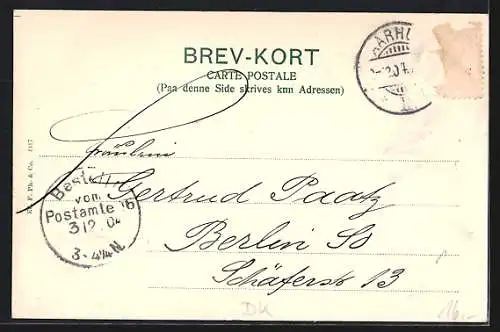 BREV-KORT
CARTE POSTALE
(Paa denne Side skrives kun Adressen)
Fräulein
Gertrud Paatz
Berlin So
Schäferstr 13
Bestellt
vom
Postamte 16
3/2 04
3-4¼N
DK
16,-